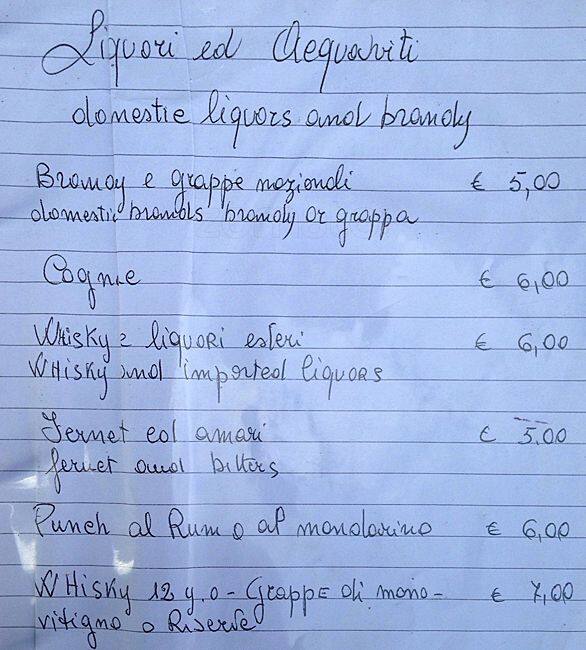 Liquori ed Acquaviti
domestic liquors and brandy
Brandy e grappe nazionali € 5,00
domestic brands brandy or grappa
Cognac € 6,00
Whisky e liquori esteri € 6,00
WHisky and imported liquors
Fernet ed amari € 5,00
fernet and bitters
Punch al Rum o al mandarino € 6,00
WHisky 12 y.o - Grappe di mono-
vitigno o Riserve € 7,00